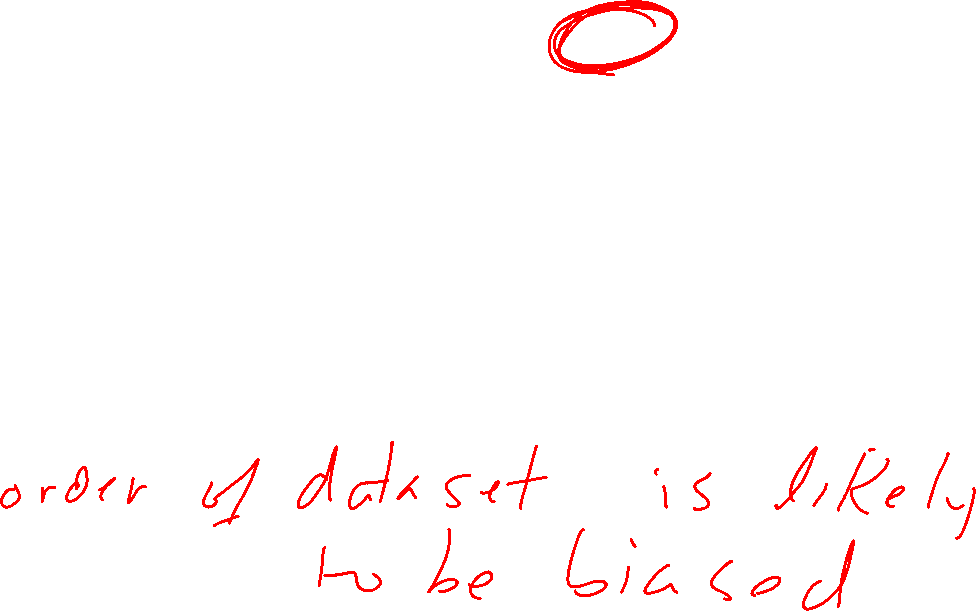 order of dataset is likely
to be biased